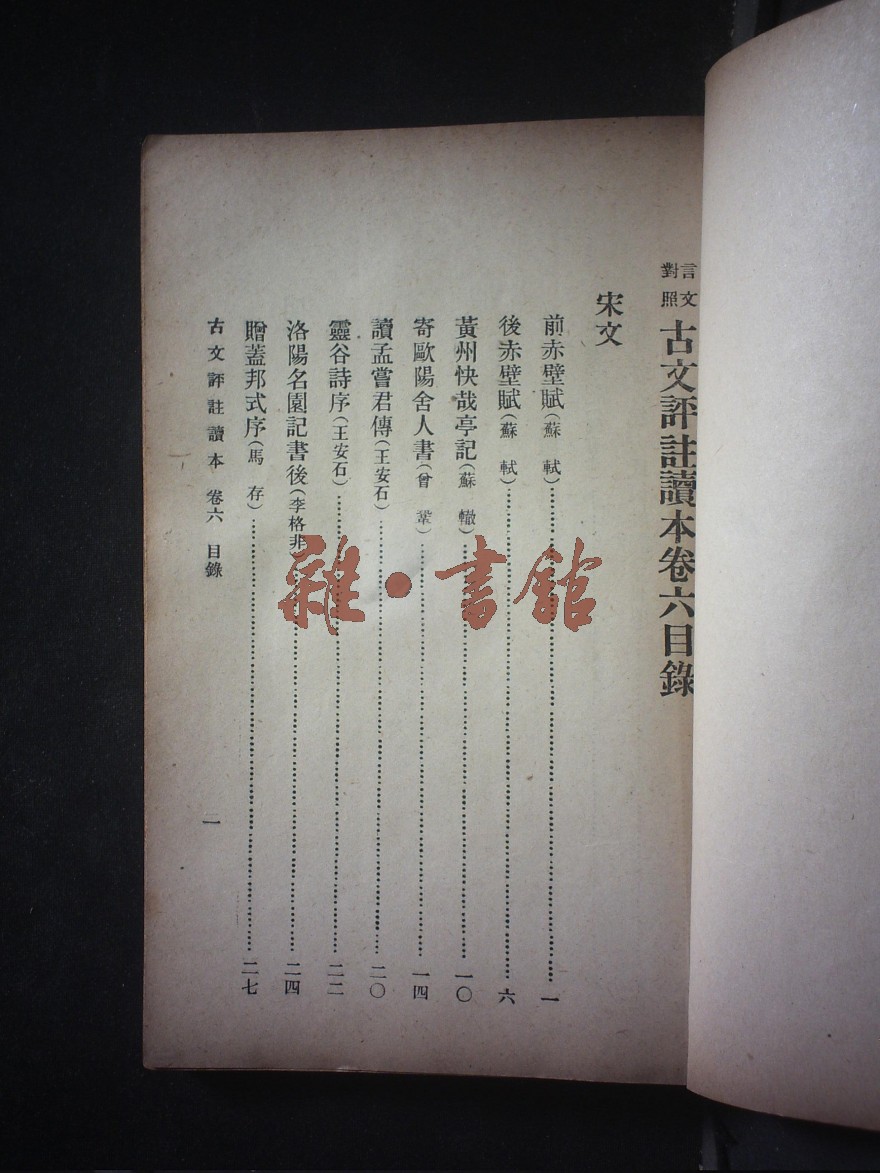 言文對照 古文評註讀本卷六目錄
宋文
前赤壁賦(蘇軾)……一
後赤壁賦(蘇軾)……六
黃州快哉亭記(蘇轍)……一〇
寄歐陽舍人書(曾鞏)……一四
讀孟嘗君傳(王安石)……二〇
靈谷詩序(王安石)……二二
洛陽名園記書後(李格非)……二四
贈蓋邦式序(馬存)……二七
古文評註讀本 卷六 目錄 一
雜·書館